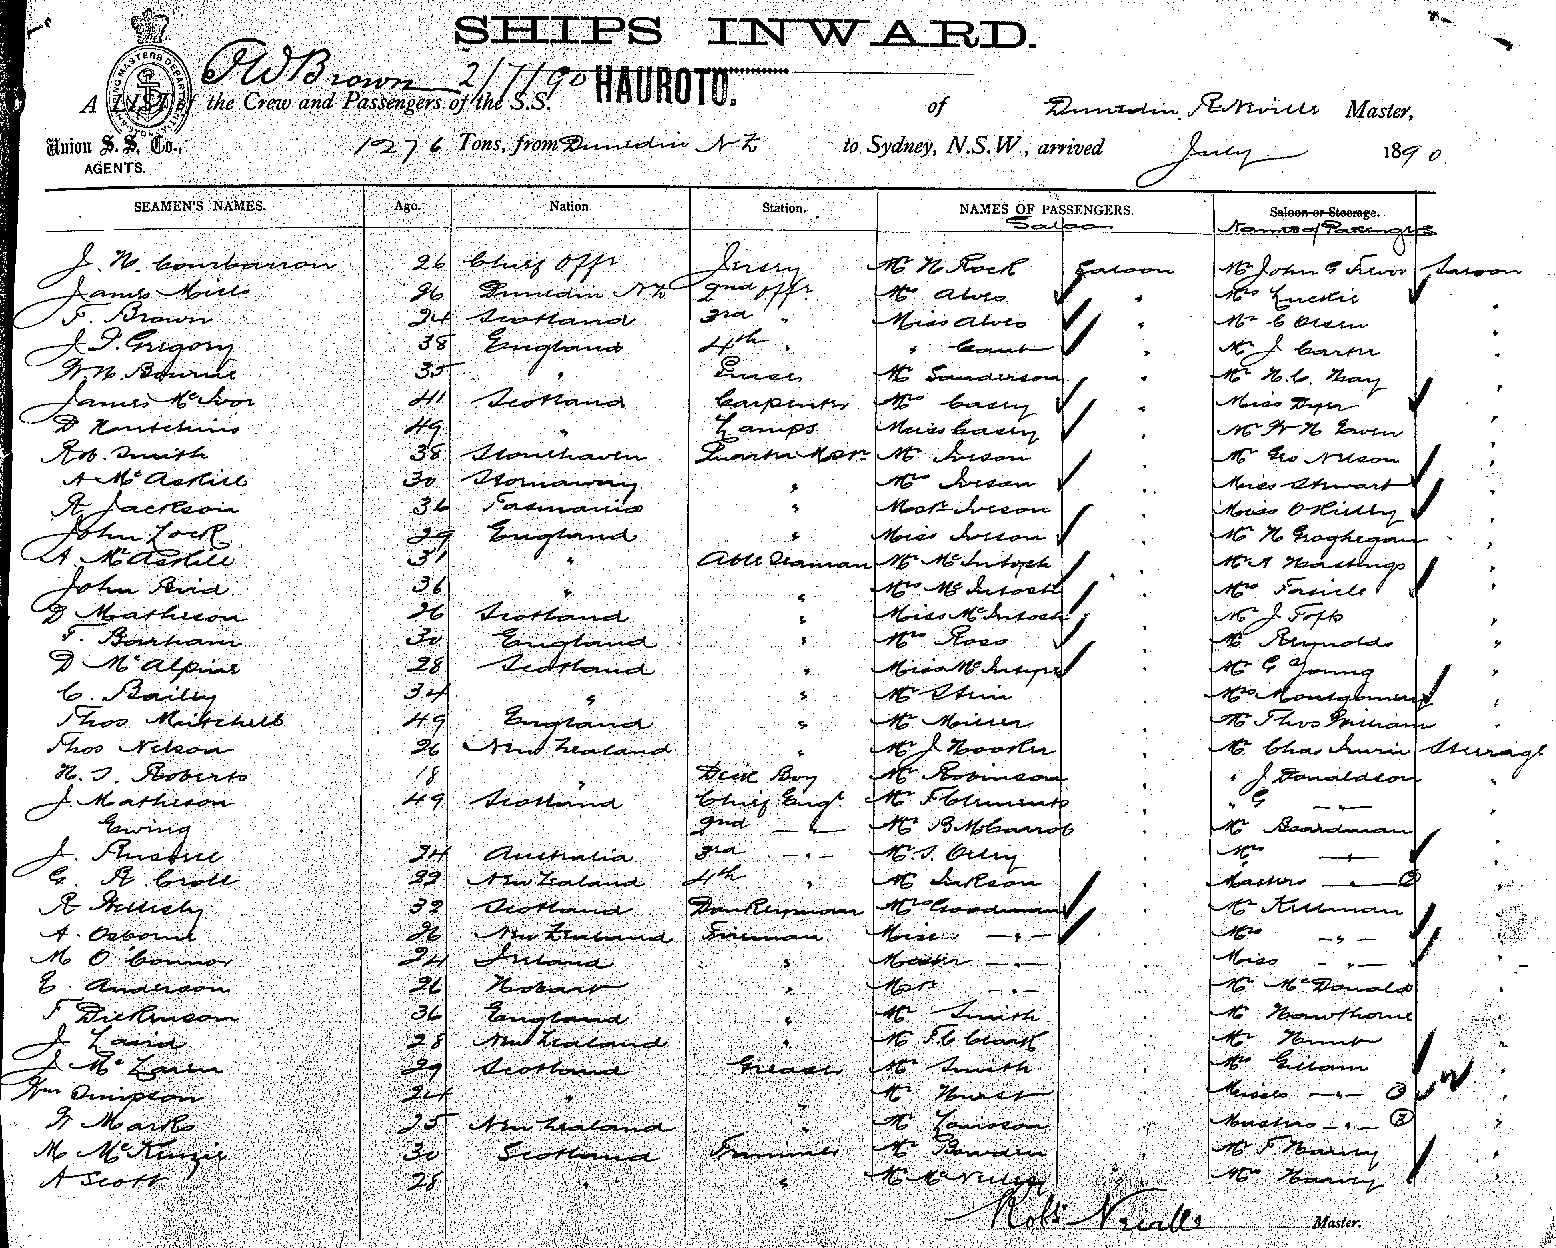 SHIPS INWARD.
2/7/90 HAUROTO.
A LIST of the Crew and Passengers of the S.S. of Dunedin R Neville Master,
Union S. S. Co., 1276 Tons, from Dunedin NZ to Sydney, N.S.W., arrived July 1890
AGENTS.
SEAMEN'S NAMES. Age. Nation. Station. NAMES OF PASSENGERS. Saloon or Steerage.
Saloon Names of Passengers
J. 26 Chief Offr Jersey Mr N Rock Saloon Mr John G Trevor Saloon
James Mills 26 Dunedin NZ 2nd Offr Mrs Alves " Mrs Luckie "
F. Brown 24 Scotland 3rd " Miss Alves " Mr C Olsen "
J. Gregory 38 England 4th " " " Mr J Carter "
W N. Bourne 35 " Mr Sanderson " Mr "
James McIvor 41 Scotland Carpenter Mrs Casey " Miss Dyer "
D 49 " Lamps Miss Casey " Mr W N "
Rob. Smith 38 Stonehaven Mr Iveson " Mr Geo Nelson "
A McAskill 30 Stornaway " Mrs Iveson " Miss Stewart "
R Jackson 36 Tasmania " Mastr Iveson " Miss "
John Lock 29 England " Miss Iveson " Mr N Geoghegan "
A McAskill 31 " Able Seaman Mr McIntosh " Hastings "
John Reid 36 " " Mrs McIntosh " Mrs "
D Matheson 26 Scotland " Miss McIntosh " Mr J "
F. Barham 30 England " Mrs Ross " Mr Reynolds "
D McAlpine 28 Scotland " Miss McIntyre " Mr G Young "
C. Bailey 34 " " Mr Stein " Mrs Montgomery "
Thos Mitchell 49 England " Mr Miller " Mr Thos William "
Thos Nelson 26 New Zealand " Mr J Hooker " Mr Chas Irwin Steerage
H. S. Roberts 18 " Deck Boy Mr Robinson " " J Donaldson "
J. Matheson 49 Scotland Chief Engr Mr F Clements " " G —"— "
Ewing 2nd —"— Mr " Mr Boardman "
J. Russell 24 Australia 3rd —"— Mr S. " Mrs —"— "
G. R. Croll 22 New Zealand 4th " Mr Jackson " Masters —"— 2 "
R 32 Scotland Donkeyman Mrs Goodman " Mr "
A. Osborne 26 New Zealand Fireman Miss —"— " Mrs —"— "
M O'Connor 24 Ireland " —"— " Miss —"— "
E. Anderson 26 Hobart " Mastr —"— " Mr McDonald "
F Dickenson 36 England " Mr Smith " Mr Hawthorne "
J Laird 28 New Zealand " Mr F C Clark " Mr "
J McLaren 29 Scotland Greaser Mr Smith " Mrs Gillam "
Wm Simpson 24 " " Mr Hurst " Misses —"— "
W Marks 25 New Zealand " Mr " Masters —"— 3 "
M McKenzie 30 Scotland Trimmer Mr Bowden " Mr F Harvey "
A Scott 28 " " Mr " Mrs Harvey "
Robt Neville Master.